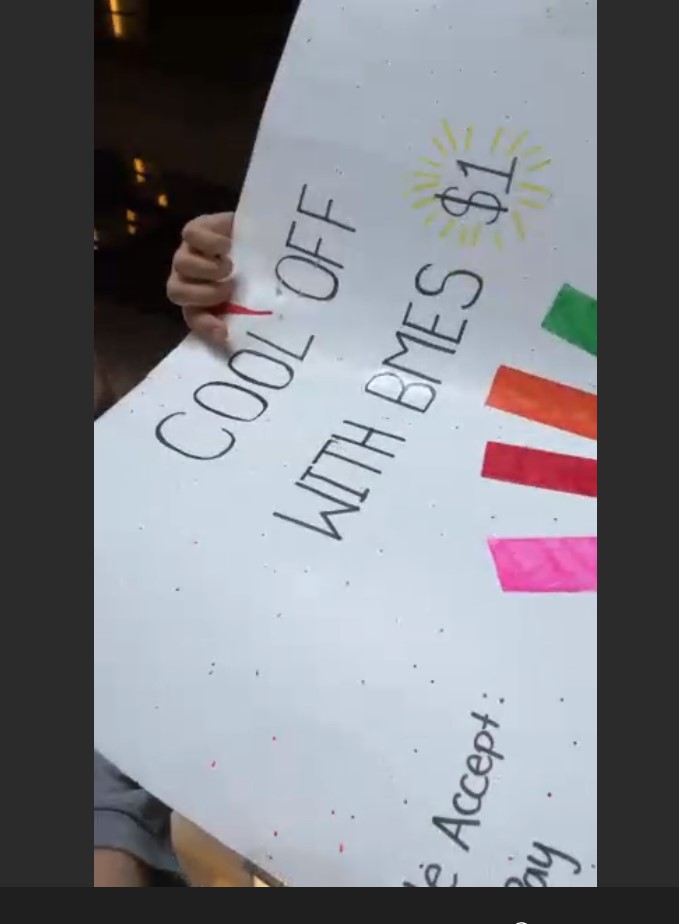 COOL OFF
WITH BMES
$1
Accept: